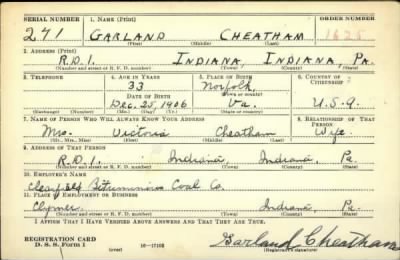 SERIAL NUMBER 1. NAME (Print) ORDER NUMBER
241 GARLAND CHEATHAM 1625
(First) (Middle) (Last)
2. ADDRESS (Print)
R.D.1. INDIANA, INDIANA, PA.
(Number and street or R. F. D. number) (Town) (County) (State)
3. TELEPHONE 4. AGE IN YEARS 5. PLACE OF BIRTH 6. COUNTRY OF CITIZENSHIP
33 Norfolk
DATE OF BIRTH (Town or county)
Dec. 25, 1906 Va. U.S.A.
(Exchange) (Number) (Mo.) (Day) (Yr.) (State or country)
7. NAME OF PERSON WHO WILL ALWAYS KNOW YOUR ADDRESS 8. RELATIONSHIP OF THAT PERSON
Mrs. Victoria Cheatham Wife
(Mr., Mrs., Miss) (First) (Middle) (Last)
9. ADDRESS OF THAT PERSON
R.D.1. Indiana, Indiana, Pa.
(Number and street or R. F. D. number) (Town) (County) (State)
10. EMPLOYER'S NAME
Clearfield Bituminious Coal Co.
11. PLACE OF EMPLOYMENT OR BUSINESS
Clymer Indiana, Pa.
(Number and street or R. F. D. number) (Town) (County) (State)
I AFFIRM THAT I HAVE VERIFIED ABOVE ANSWERS AND THAT THEY ARE TRUE.
REGISTRATION CARD
D. S. S. Form 1 (over) 16—17105 Garland Cheatham